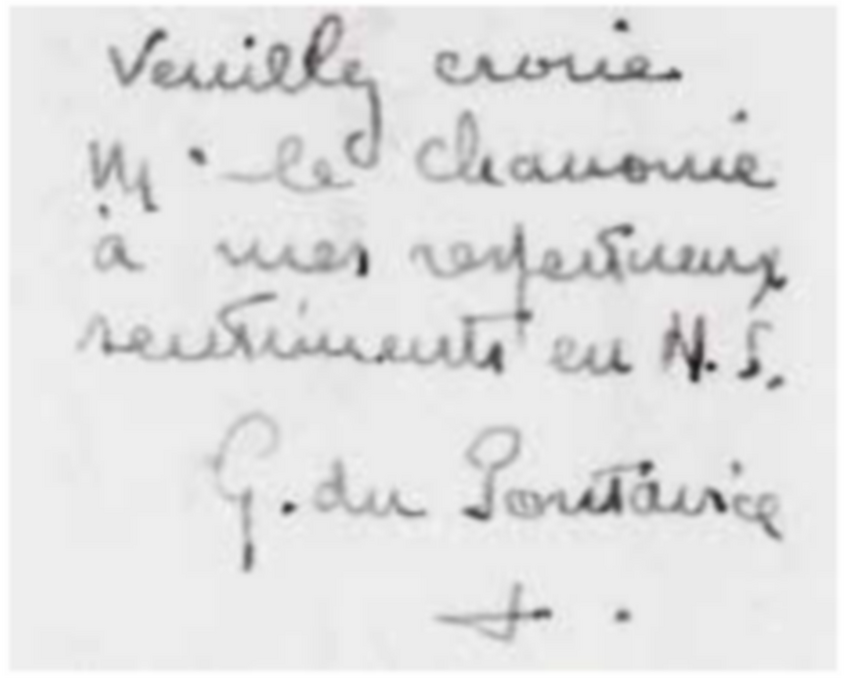 Veuillez croire
M. le Chanoine
à mes respectueux
sentiments en N. S.
G. du Pontavice